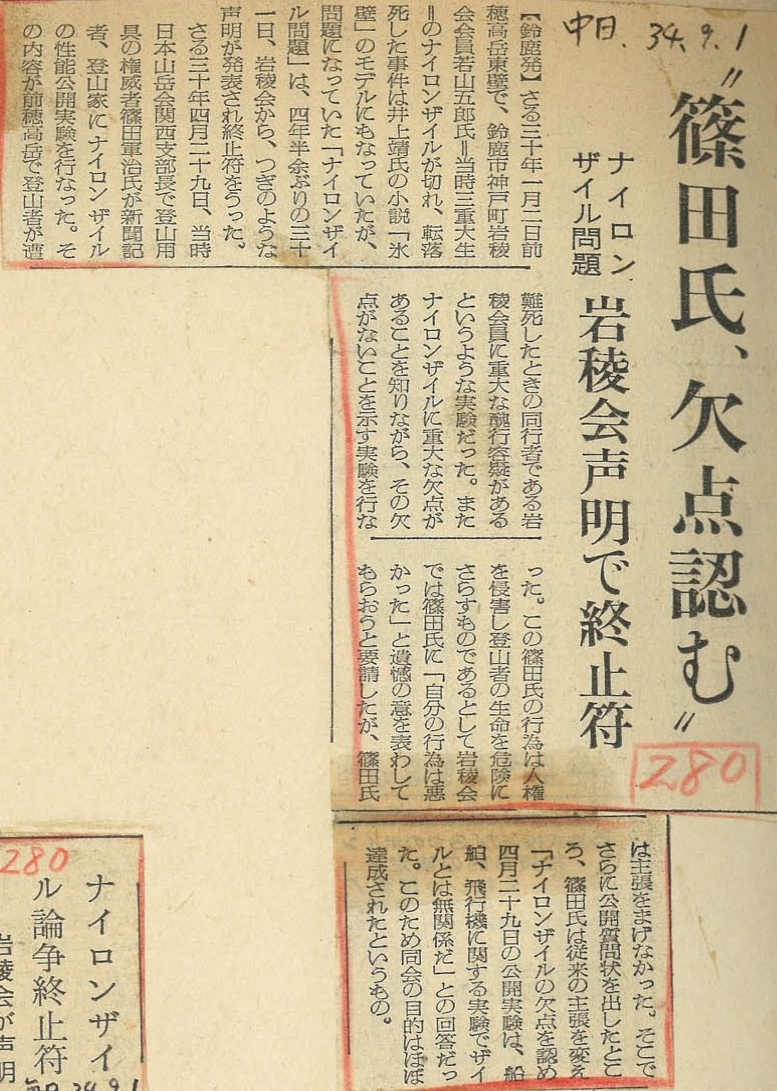 中日. 34.9.1
〝篠田氏、欠点認む〟
ナイロン
ザイル問題
岩稜会声明で終止符
【鈴鹿発】さる三十年一月二日前
穂高岳東壁で、鈴鹿市神戸町岩稜
会会員若山五郎氏＝当時三重大生
＝のナイロンザイルが切れ、転落
死した事件は井上靖氏の小説「氷
壁」のモデルにもなっていたが、
問題になっていた「ナイロンザイ
ル問題」は、四年半余ぶりの三十
一日、岩稜会から、つぎのような
声明が発表され終止符をうった。
さる三十年四月二十九日、当時
日本山岳会関西支部長で登山用
具の権威者篠田軍治氏が新聞記
者、登山家にナイロンザイル
の性能公開実験を行なった。そ
の内容が前穂高岳で登山者が遭
難死したときの同行者である岩
稜会員に重大な醜行容疑がある
というような実験だった。また
ナイロンザイルに重大な欠点が
あることを知りながら、その欠
点がないことを示す実験を行な
った。この篠田氏の行為は人権
を侵害し登山者の生命を危険に
さらすものであるとして岩稜会
では篠田氏に「自分の行為は悪
かった」と遺憾の意を表わして
もらおうと要請したが、篠田氏
280
は主張をまげなかった。そこで
さらに公開質問状を出したとこ
ろ、篠田氏は従来の主張を変え
「ナイロンザイルの欠点を認め
四月二十九日の公開実験は、船
舶、飛行機に関する実験でザイ
ルとは無関係だ」との回答だっ
た。このため同会の目的はほぼ
達成されたというもの。
280
ナイロンザイ
ル論争終止符
岩稜会が声明
毎日 34.9.1